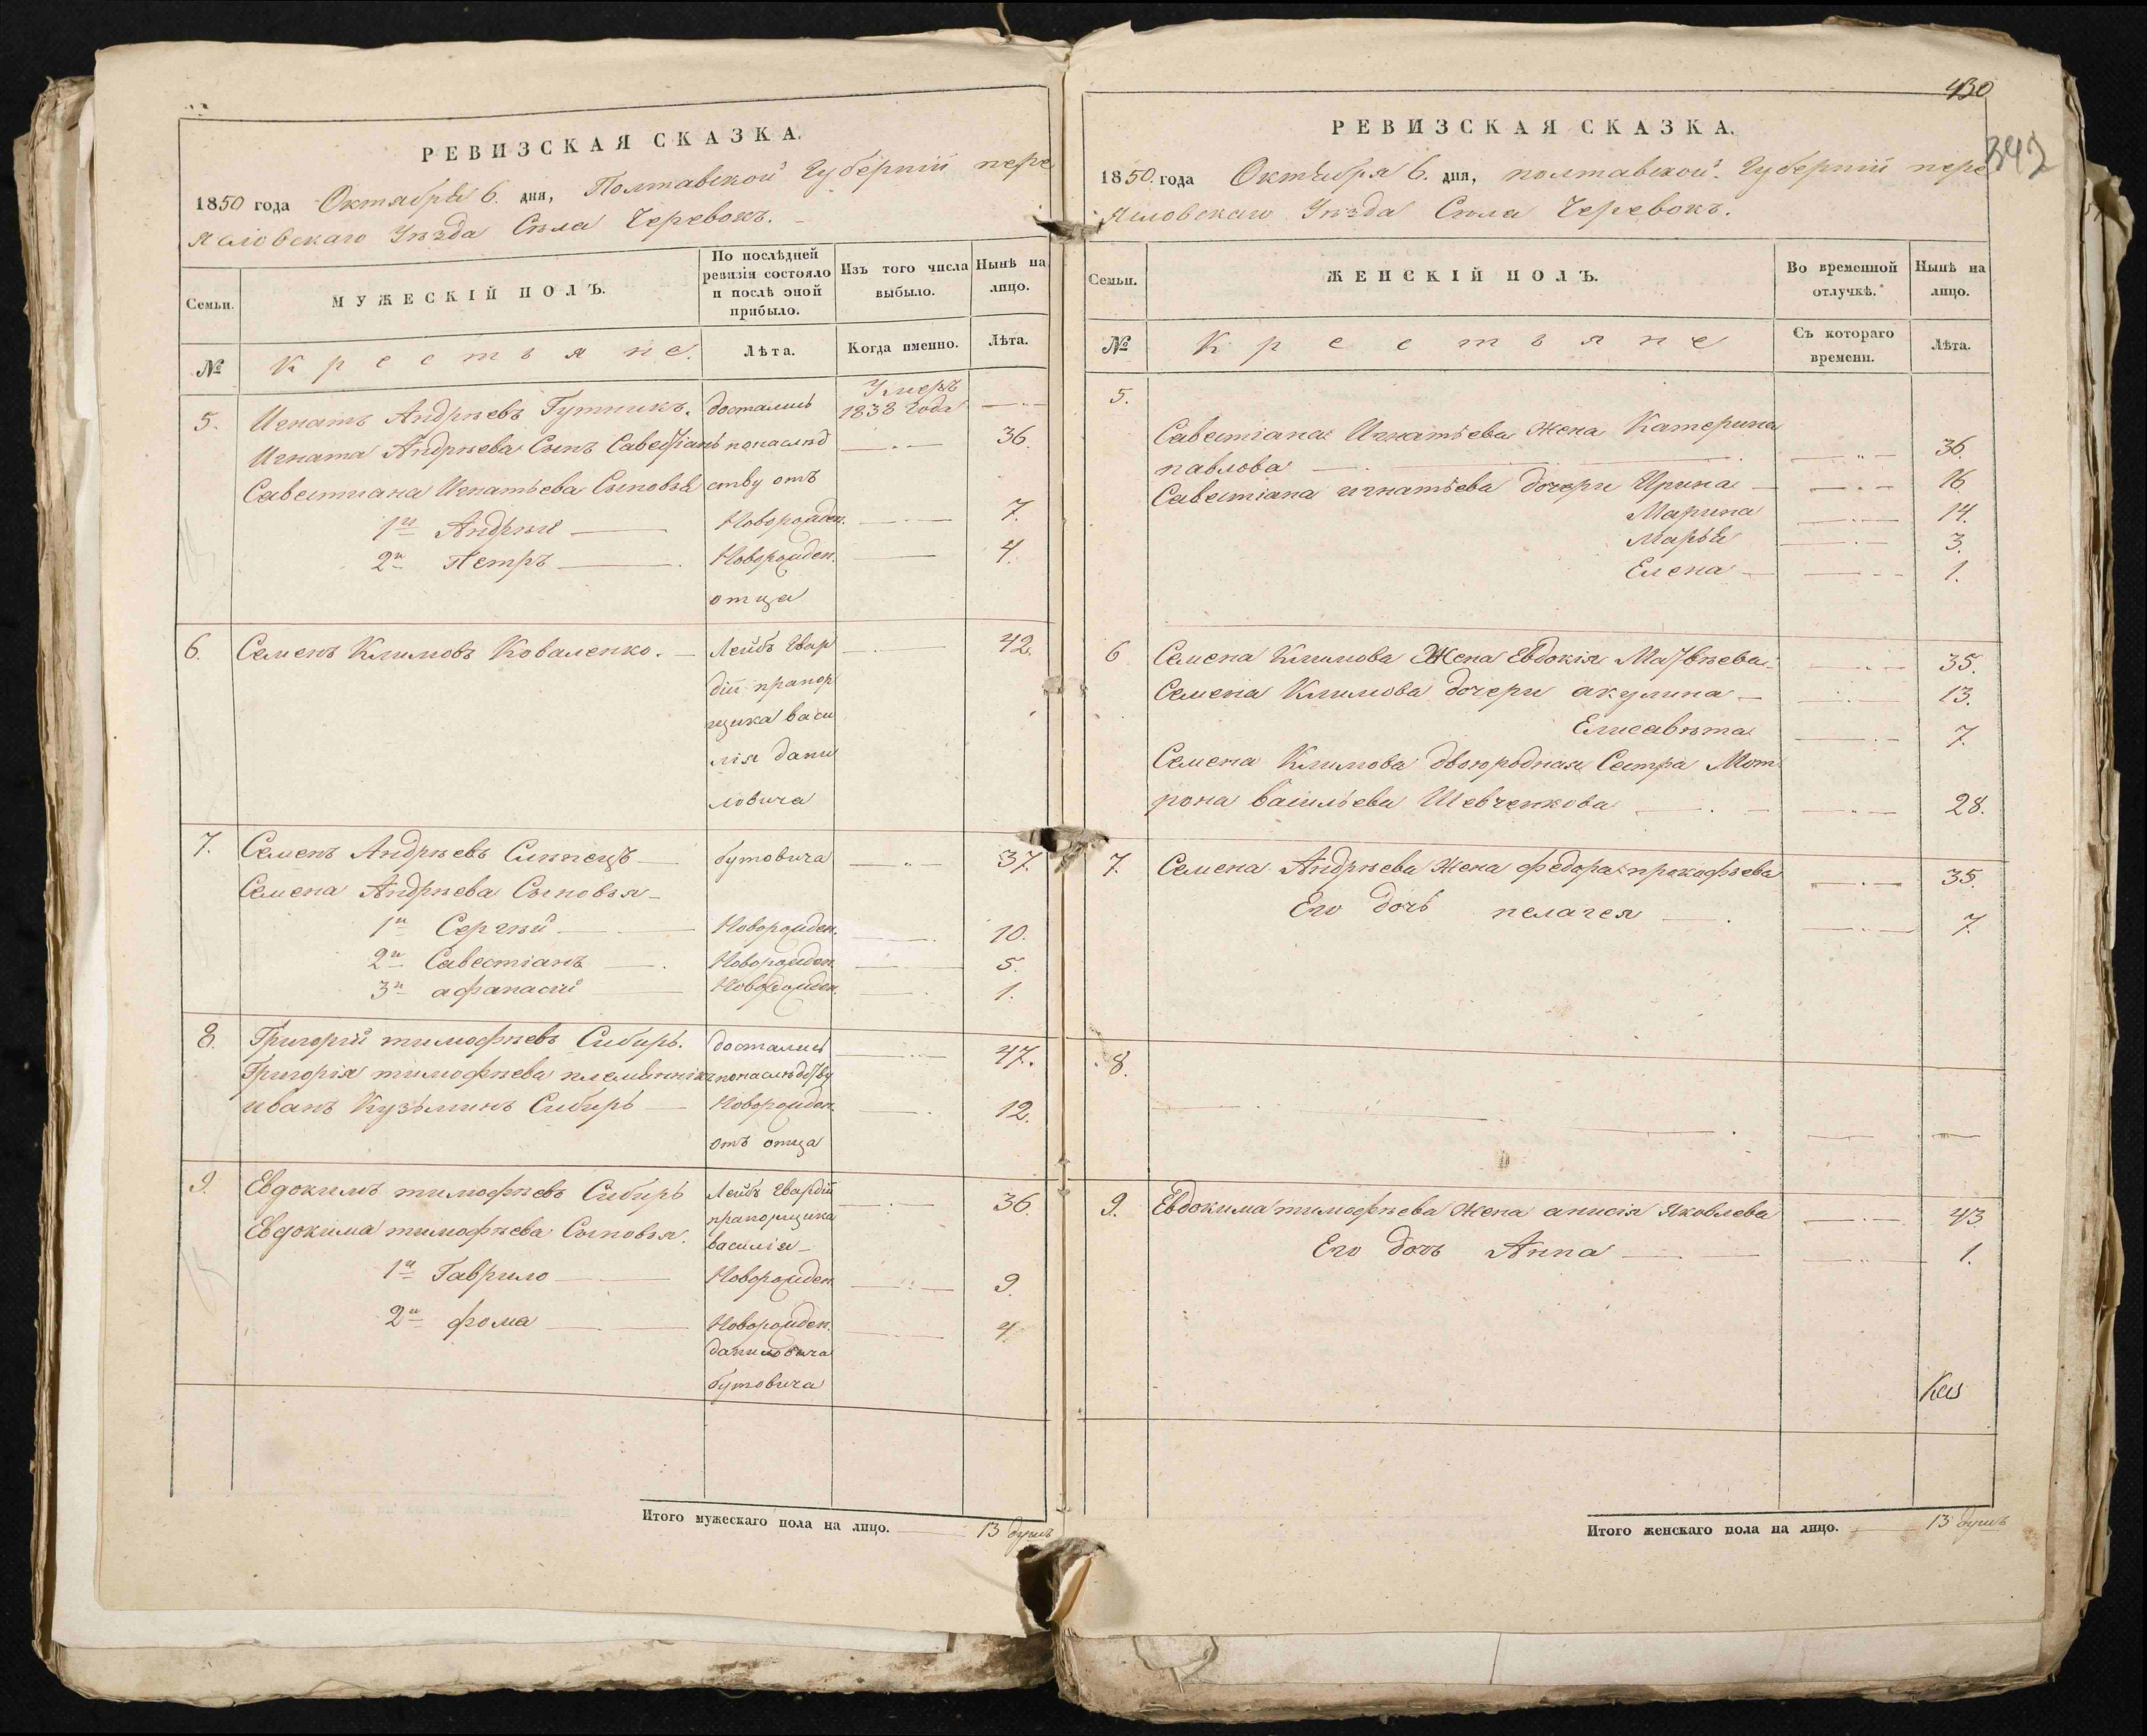 РЕВИЗСКАЯ СКАЗКА.
1850 года Октября 6. дня, Полтавской Губерніи пере
яславскаго Уѣзда Села Черевокъ.
Семьи.
МУЖЕСКІЙ ПОЛЪ.
По послѣдней
ревизіи состояло
и послѣ оной
прибыло.
Изъ того числа
выбыло.
Нынѣ на
лицо.
№
Крестьяне.
Лѣта.
Когда именно.
Лѣта.
5. Игнатъ Андрѣевъ Гутникъ. достались Умеръ 1838 года
Игната Андрѣева Сынъ Савестіанъ понаслѣд 36.
Савестиана Игнатьева Сыновья ству отъ
1й Андрѣй Новорожден. 7.
2й Петръ Новорожден. 4.
отца
6. Семенъ Климовъ Коваленко. Лейбъ Гвар 42.
дій прапор
щика Васи
лія Дани
ловича
7. Семенъ Андрѣевъ Слѣпецъ бутовича 37.
Семена Андрѣева Сыновья
1й Сергѣй Новорожден. 10.
2й Савестіанъ Новорожден. 5.
3й афанасій Новорожден. 1.
8. Григорій тимофѣевъ Сибирь. достались 47.
Григорія тимофѣева племянникъ понаслѣдству
иванъ Кузьминъ Сибирь Новорожден. 12.
отъ отца
9. Евдокимъ тимофѣевъ Сибирь Лейбъ Гвардіи 36.
Евдокима тимофѣева Сыновья. прапорщика
василія
1й Гаврило Новорожден. 9.
2й фома Новорожден. 4.
даниловича
бутовича
Итого мужескаго пола на лицо. 13 душъ
430
342
РЕВИЗСКАЯ СКАЗКА.
1850. года Октября 6. дня, полтавской Губерніи пере
яславскаго Уѣзда Села Черевокъ.
Семьи.
ЖЕНСКІЙ ПОЛЪ.
Во временной
отлучкѣ.
Нынѣ на
лицо.
№
Крестьяне
Съ котораго
времени.
Лѣта.
5.
Савестіана Игнатьева жена Катерина
павлова 36.
Савестіана игнатьева дочери Ирина 16.
Марина 14.
Марья 3.
Елена 1.
6 Семена Климова Жена Евдокія Матвѣева 35.
Семена Климова дочери акулина 13.
Елисавѣта 7.
Семена Климова двоюродная Сестра Мот
рона васильева Шевченкова 28.
7. Семена Андрѣева жена федора прокофьева 35.
Его дочь пелагея 7.
8.
9. Евдокима тимофѣева жена анисія Яковлева 43
Его дочь Анна 1.
Итого женскаго пола на лицо. 13 душъ